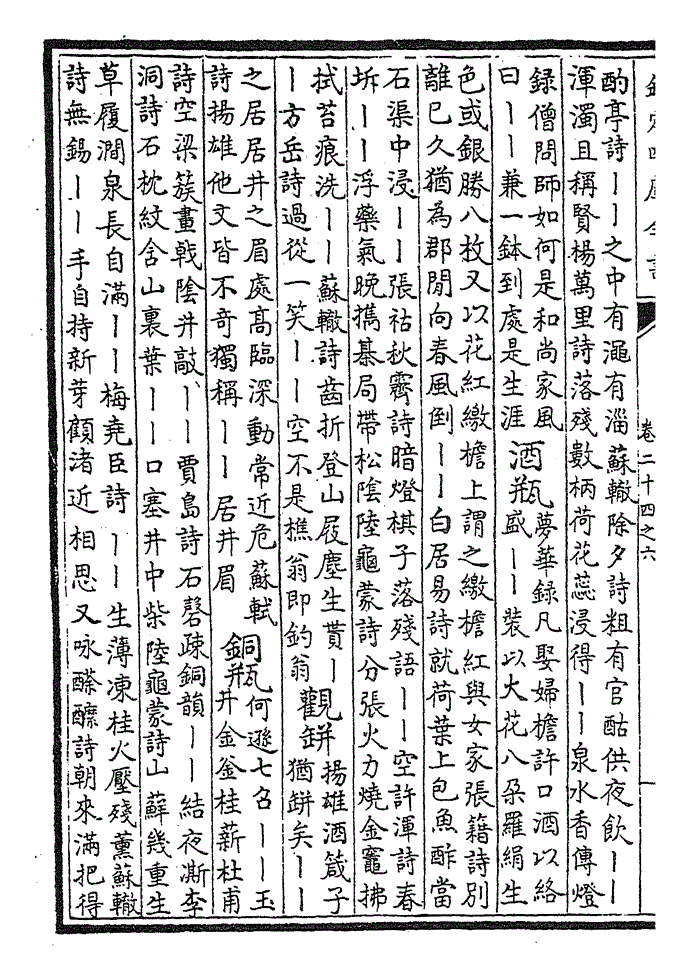 欽定四庫全書
卷二十四之六
酌亭詩ーー之中有澠有淄蘇轍除夕詩粗有官酤供夜飲ーー
渾濁且稱賢楊萬里詩落殘數柄荷花蕊浸得ーー泉水香傳燈
録僧問師如何是和尚家風
曰ーー兼一鉢到處是生涯
酒瓶
夢華録凡娶婦檐許口酒以絡
盛ーー裝以大花八朶羅絹生
色或銀勝八枚又以花紅繳檐上謂之繳檐紅與女家張籍詩别
離已久猶為郡閒向春風倒ーー白居易詩就荷葉上包魚酢當
石渠中浸ーー張祜秋霽詩暗燈棋子落殘語ーー空許渾詩春
坼ーー浮藥氣晚攜棊局帶松陰陸龜蒙詩分張火力燒金竈拂
拭苔痕洗ーー蘇轍詩齒折登山屐塵生貰ー
ー方岳詩過從一笑ーー空不是樵翁即釣翁
觀缾
揚雄酒箴子
猶缾矣ーー
之居居井之眉處高臨深動常近危蘇軾
詩揚雄他文皆不奇獨稱ーー居井眉
銅瓶
何遜七召ーー玉
井金釜桂薪杜甫
詩空梁簇畫戟陰井敲ーー賈島詩石磬疎銅韻ーー結夜澌李
洞詩石枕紋含山裏葉ーー口塞井中柴陸龜蒙詩山蘚幾重生
草履澗泉長自滿ーー梅堯臣詩ーー生薄凍桂火壓殘薰蘇轍
詩無錫ーー手自持新芽顧渚近相思又咏酴醿詩朝來滿把得